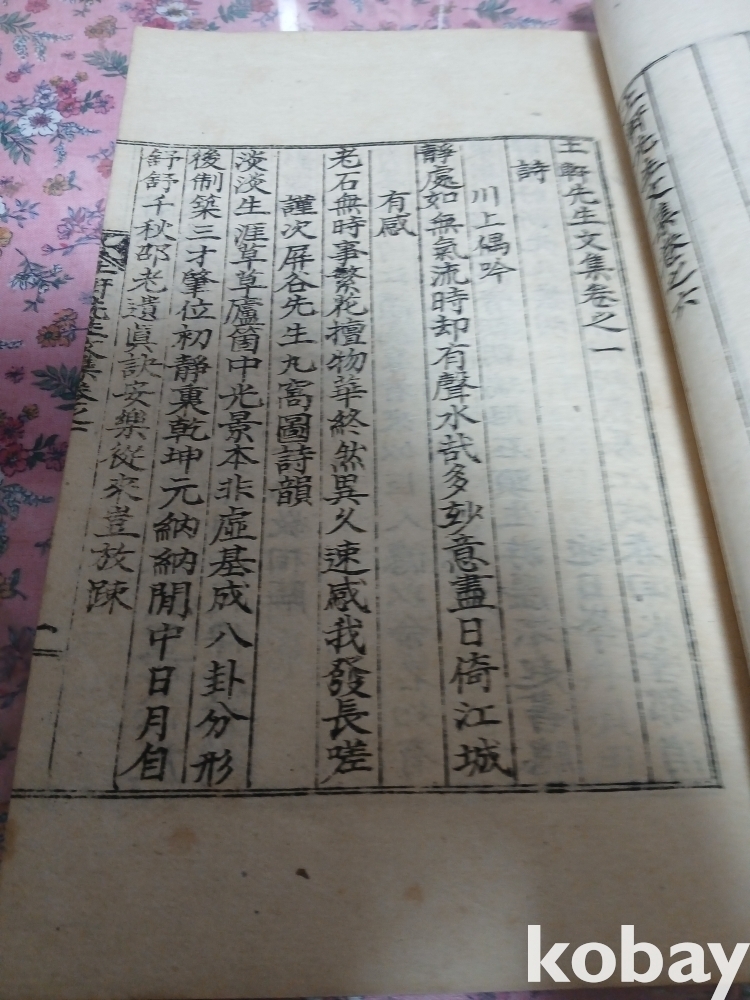 王軒先生文集卷之一
詩
川上偶吟
靜處如無氣流時却有聲水哉多妙意盡日倚江城
有感
老石無時事繁花擅物華終然異久速感我發長嗟
謹次屏谷先生九窩圖詩韻
淡淡生涯草草廬箇中光景本非虛基成八卦分形
後制築三才肇位初靜裏乾坤元納納閒中日月自
舒舒千秋邵老遺眞訣安樂從來豈放疎
先生文集卷之一
一
先生文集卷之六
kobay